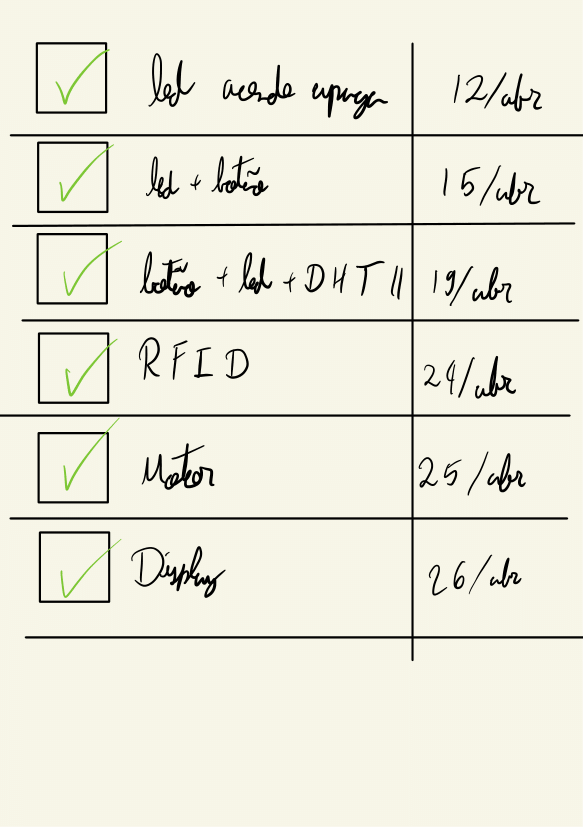 led acende apaga 12/abr
led + botão 15/abr
botão + led + DHT11 19/abr
RFID 24/abr
Motor 25/abr
Display 26/abr